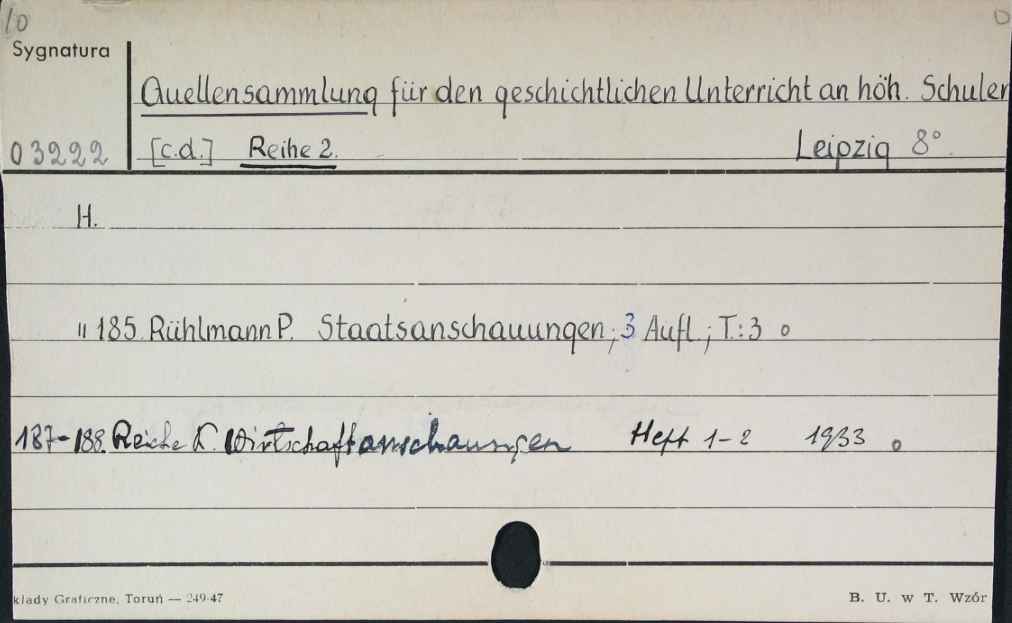 10
Sygnatura
Quellensammlung für den geschichtlichen Unterricht an höh. Schulen
03222 [c.d.] Reihe 2. Leipzig 8°.
H.
" 185. Rühlmann P. Staatsanschauungen; 3 Aufl.; T.: 3 o
187-188. Reiche K. Wirtschaftanschauungen Heft 1-2 1933 o
kłady Graficzne, Toruń — 249-47 B. U. w T. Wzór